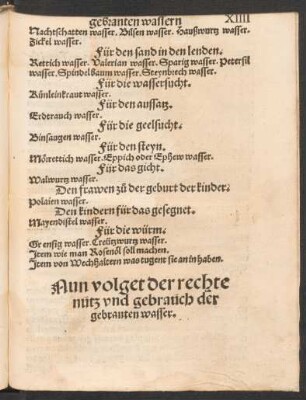 gebranten wassern XIIII
Nachtschatten wasser. Bilsen wasser. Haußwurtz wasser.
Zickel wasser.
Für den sand in den lenden.
Rettich wasser. Valerian wasser. Sparig wasser. Petersil
wasser. Spindelbaum wasser. Steynbrech wasser.
Für die wassersucht.
Künleinkraut wasser.
Für den aussatz.
Erdtrauch wasser.
Für die geelsucht.
Binsaugen wasser.
Für den steyn.
Mörrettich wasser. Eppich oder Ephew wasser.
Für das gicht.
Walwurtz wasser.
Den frawen zů der geburt der kinder.
Polaien wasser.
Den kindern für das gesegnet.
Mayendistel wasser.
Für die würm.
Grensig wasser. Creützwurtz wasser.
Item wie man Rosenöl soll machen.
Item von Wechhaltern was tugent sie an in haben.
Nun volget der rechte
nutz vnd gebrauch der
gebranten wasser.